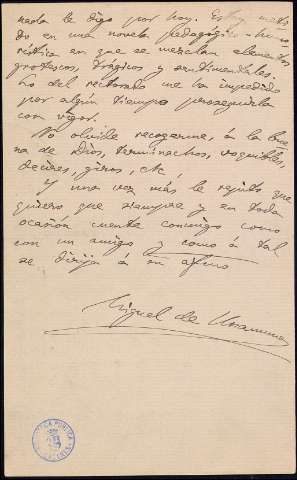 nada le digo por hoy. Estoy meti
do en una novela pedagógico-humo
rística en que se mezclan elementos
grotescos, trágicos y sentimentales.
Lo del rectorado me ha impedido
por algún tiempo proseguirla
con vigor.
No olvide recogerme, á la bue
na de Dios, terminachos, voquibles,
decires, giros, etc.
Y una vez más le repito que
quiero que siempre y en toda
ocasión cuente conmigo como
con un amigo y como á tal
se dirija á su afmo
Miguel de Unamuno
BIBLIOTECA PUBLICA
CACERES